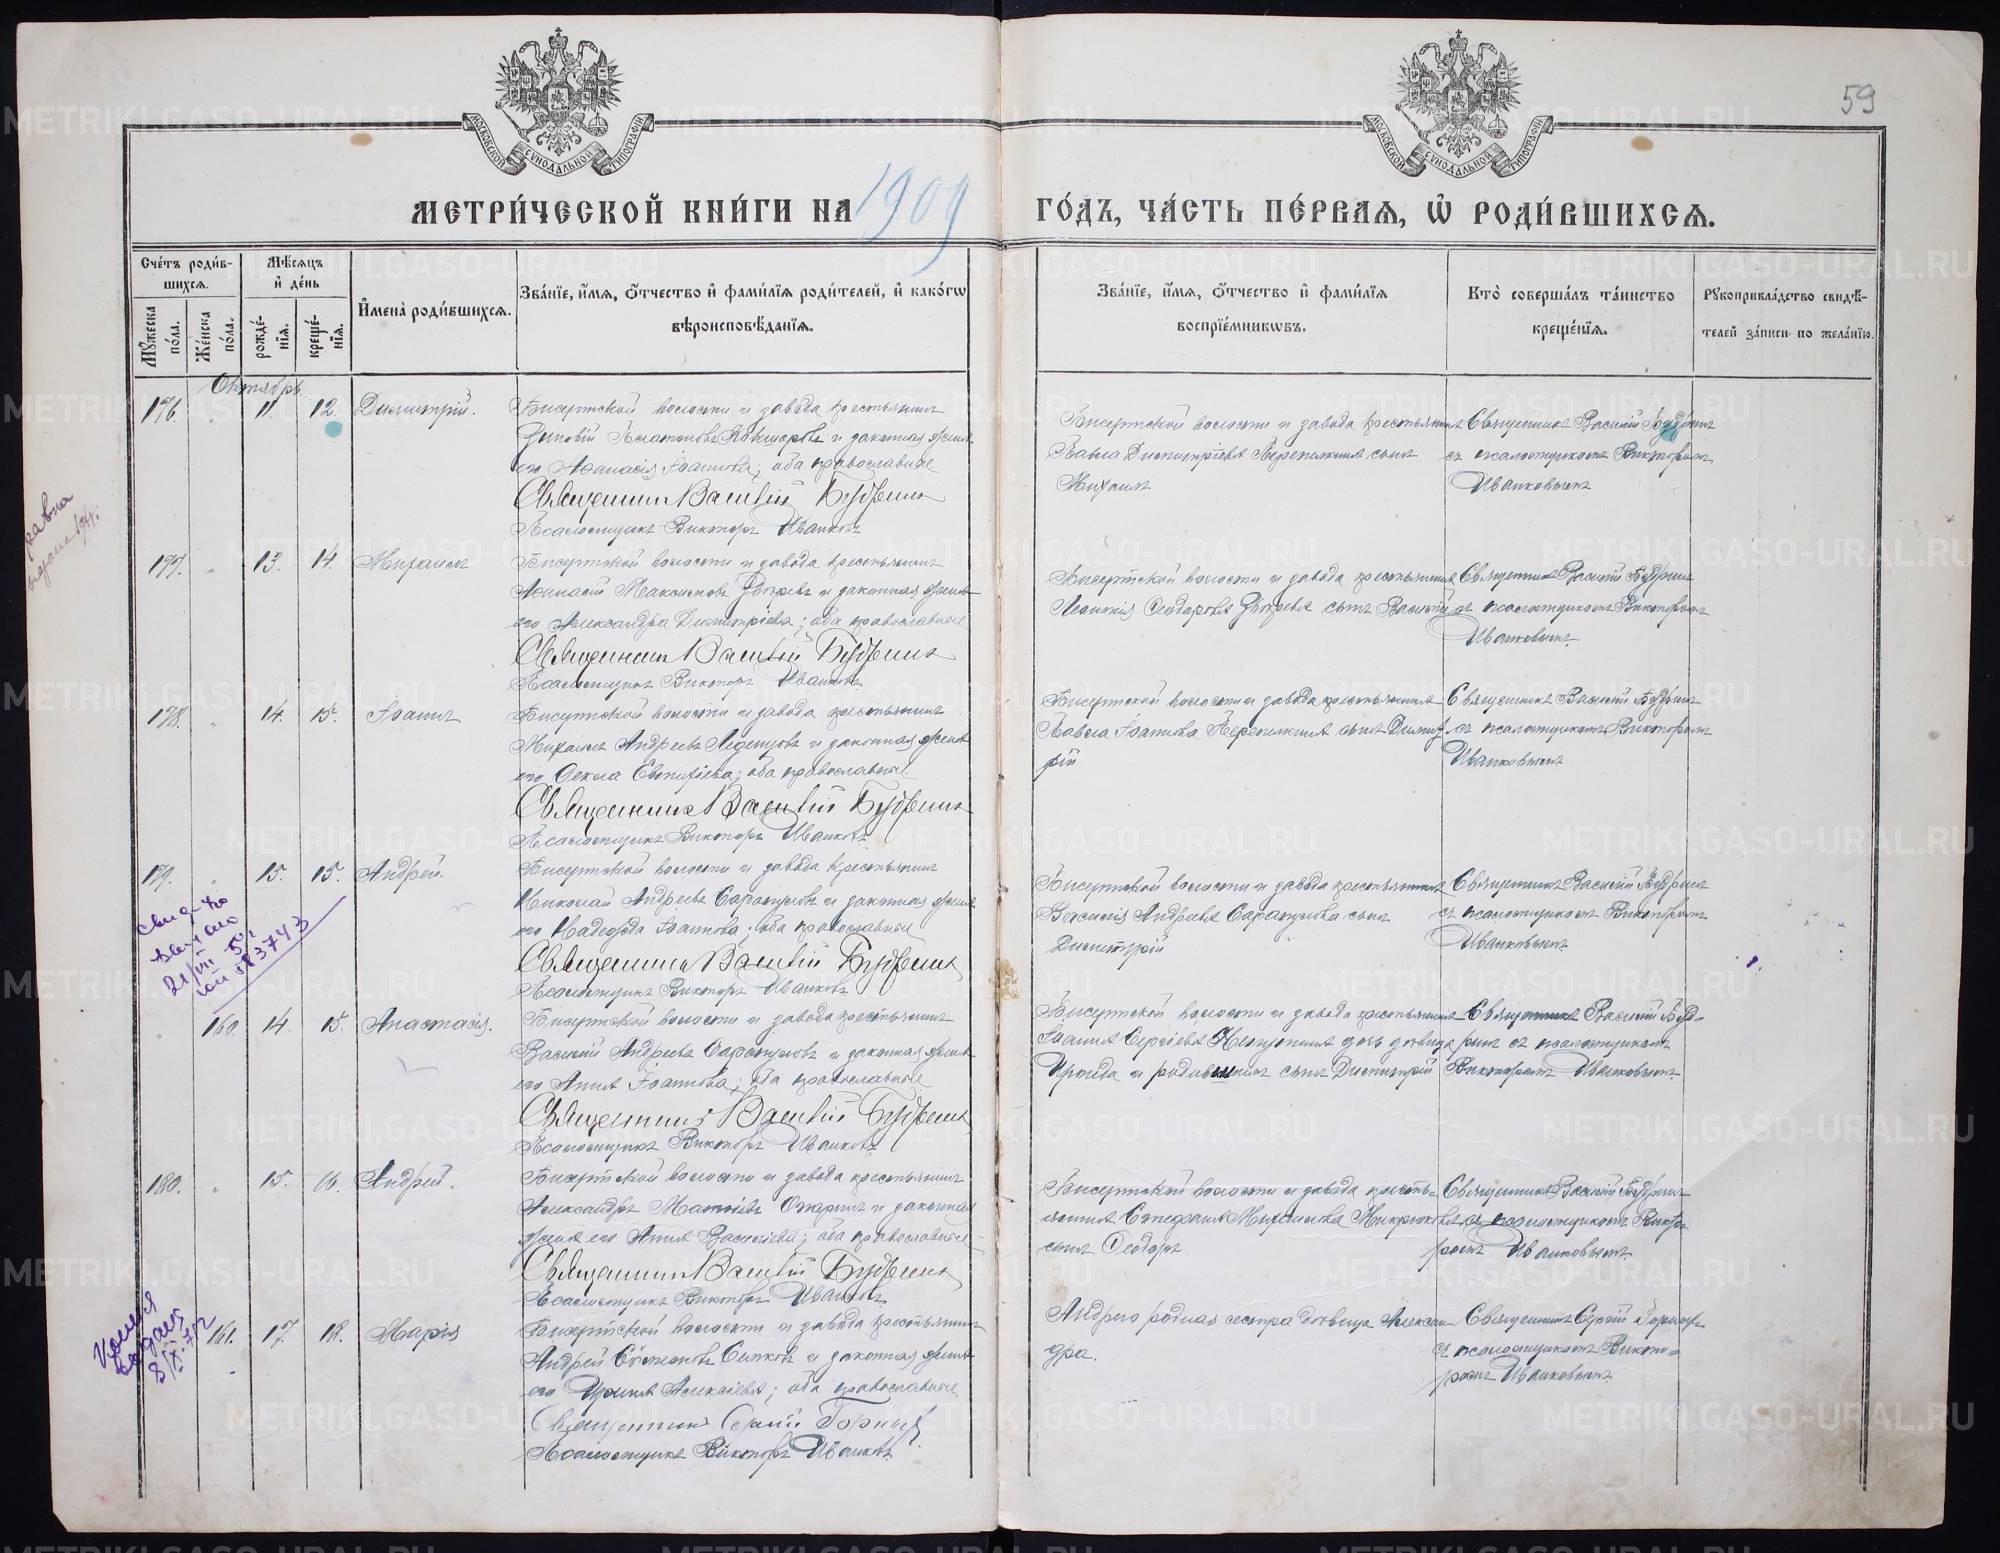 МОСКОВСКОЙ СѴНОДАЛЬНОЙ ТИПОГРАФІИ
МОСКОВСКОЙ СѴНОДАЛЬНОЙ ТИПОГРАФІИ
59
МЕТРИ́ЧЕСКОЙ КНИ́ГИ НА 1909
ГО́ДЪ, ЧА́СТЬ ПЕ́РВАЯ, Ѡ РОДИ́ВШИХСЯ.
Сче́тъ роди́в-
шихся.
Мꙋжеска по́ла.
Же́нска по́ла.
Мѣ́сяцъ
и҆ де́нь
рожде́-
нія.
креще́-
нія.
И҆мена̀ роди́вшихся.
Зва́нїе, и҆́мя, ѻ҆́тчество и҆ фамилїя роди́телей, и҆ како́гѡ
вѣроисповѣ́данїя.
Зва́нїе, и҆́мя, ѻ҆́тчество и҆ фами́лїя
воспрїе́мникѡвъ.
Кто̀ соверша́лъ та́инство
креще́нїя.
Рꙋкоприкла́дство свидѣ́-
телей за́писи по жела́нїю.
Октябрь
176. " 11. 12. Димитрій.
Бисертской волости и завода крестьянинъ
Платоновъ и законная жена
его Аѳанасія Іоаннова; оба православные
Священникъ Василій Будринъ
Псаломщикъ Викторъ Иванковъ
Бисертской волости и завода крестьянина
Павла Димитріева Перепелкина сынъ
Михаилъ
Священникъ Василій Будринъ
съ псаломщикомъ Викторомъ
Иванковымъ
177. " 13. 14. Михаилъ
Бисертской волости и завода крестьянинъ
Аѳанасій Максимовъ и законная жена
его Александра Димитріева; оба православные
Священникъ Василій Будринъ
Псаломщикъ Викторъ Иванковъ
Бисертской волости и завода крестьянина
Ѳеодорова сынъ Василій
Священникъ Василій Будринъ
съ псаломщикомъ Викторомъ
Иванковымъ.
178. " 14. 15. Іоаннъ
Бисертской волости и завода крестьянинъ
Михаилъ Андреевъ Леденцовъ и законная жена
его Ѳекла; оба православные
Священникъ Василій Будринъ
Псаломщикъ Викторъ Иванковъ
Бисертской волости и завода крестьянина
Павла Іоаннова Перепелкина сынъ Димит-
рій
Священникъ Василій Будринъ
съ псаломщикомъ Викторомъ
Иванковымъ
179. " 15. 15. Андрей.
Бисертской волости и завода крестьянинъ
Николай Андреевъ Сарапуловъ и законная жена
его Надежда Іоаннова; оба православные
Священникъ Василій Будринъ
Псаломщикъ Викторъ Иванковъ
Бисертской волости и завода крестьянина
Василія Андреева Сарапулова сынъ
Димитрій
Священникъ Василій Будринъ
съ псаломщикомъ Викторомъ
Иванковымъ
" 160. 14. 15. Анастасія.
Бисертской волости и завода крестьянинъ
Василій Андреевъ Сарапуловъ и законная жена
его Анна Іоаннова; оба православные
Священникъ Василій Будринъ
Псаломщикъ Викторъ Иванковъ
Бисертской волости и завода крестьянина
Іоанна Сергіева дочь дѣвица
Ираида и сынъ Димитрій
Священникъ Василій Буд-
ринъ съ псаломщикомъ
Викторомъ Иванковымъ.
180. " 15. 16. Андрей.
Бисертской волости и завода крестьянинъ
Александръ и законная
жена его Анна Василіева; оба православные
Священникъ Василій Будринъ
Псаломщикъ Викторъ Иванковъ
Бисертской волости и завода кресть-
янина Стефана Михаилова
сынъ Ѳеодоръ.
Священникъ Василій Будринъ
съ псаломщикомъ Викто-
ромъ Иванковымъ.
161. 17. 18. Марія
Бисертской волости и завода крестьянинъ
Андрей и законная жена
его Ирина Алексіева; оба православные.
Священникъ Сергій
Псаломщикъ Викторъ Иванковъ
Андрею родная сестра дѣвица Алексан-
дра.
Священникъ Сергій
съ псаломщикомъ Викто-
ромъ Иванковымъ
Свид-во
выслано
Копия
выдана
METRIKI.GASO-URAL.RU